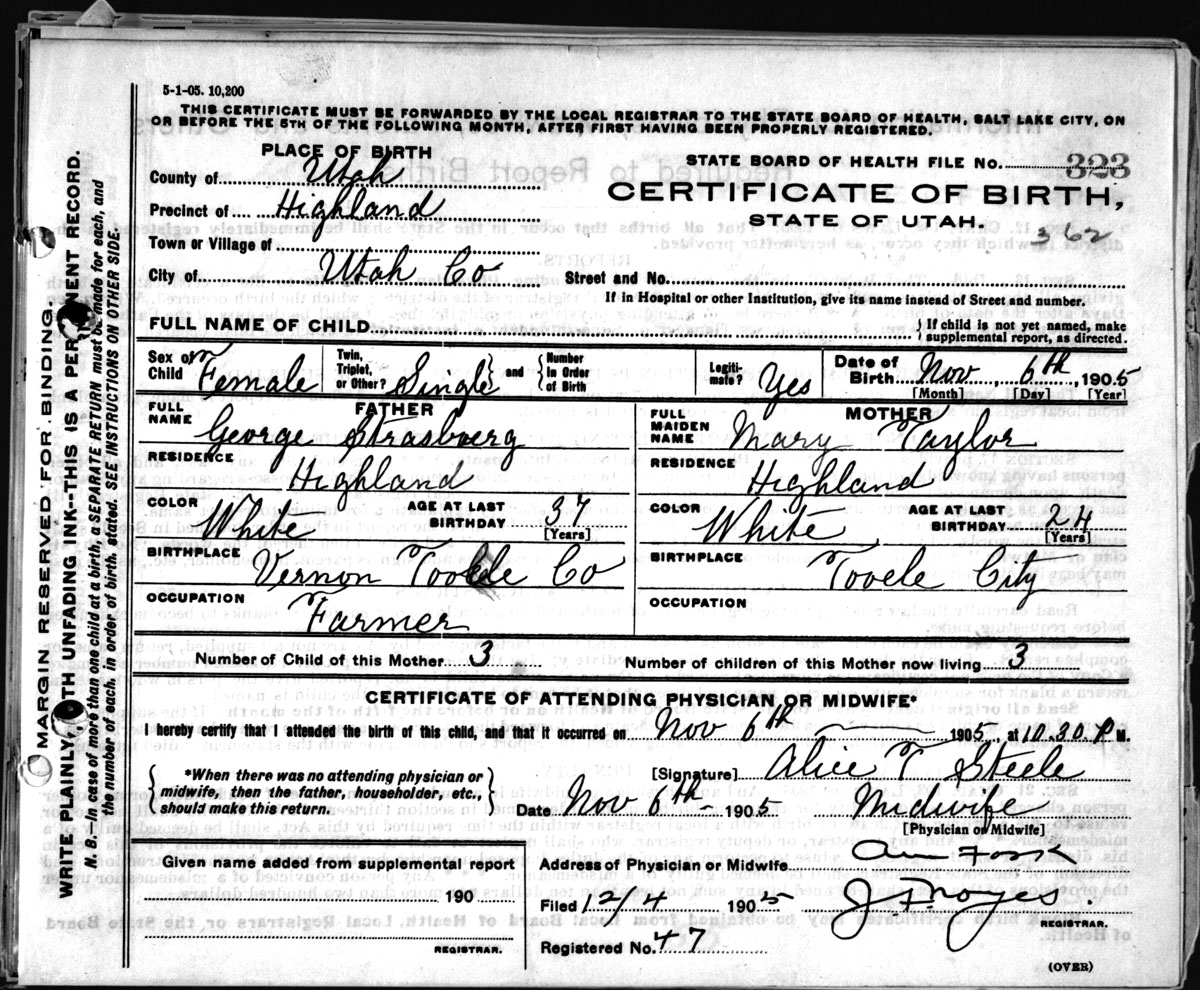 5-1-05. 10,200
THIS CERTIFICATE MUST BE FORWARDED BY THE LOCAL REGISTRAR TO THE STATE BOARD OF HEALTH, SALT LAKE CITY, ON
OR BEFORE THE 5TH OF THE FOLLOWING MONTH, AFTER FIRST HAVING BEEN PROPERLY REGISTERED.
PLACE OF BIRTH
STATE BOARD OF HEALTH FILE NO. 323
County of Utah
CERTIFICATE OF BIRTH,
Precinct of Highland
STATE OF UTAH.
362
Town or Village of
City of Utah Co Street and No.
If in Hospital or other Institution, give its name instead of Street and number.
FULL NAME OF CHILD { If child is not yet named, make
supplemental report, as directed.
Sex of Child Female
Twin, Triplet, or Other? Single and { Number In Order of Birth
Legitimate? Yes
Date of Birth Nov, 6th, 1905
[Month] [Day] [Year]
FATHER
FULL NAME George Strasbuerg
RESIDENCE
Highland
COLOR White AGE AT LAST BIRTHDAY 37
[Years]
BIRTHPLACE
Vernon Tooele Co
OCCUPATION
Farmer
MOTHER
FULL MAIDEN NAME Mary Taylor
RESIDENCE
Highland
COLOR White AGE AT LAST BIRTHDAY 24
[Years]
BIRTHPLACE
Tooele City
OCCUPATION
Number of Child of this Mother 3 Number of children of this Mother now living 3
CERTIFICATE OF ATTENDING PHYSICIAN OR MIDWIFE*
I hereby certify that I attended the birth of this child, and that it occurred on Nov 6th 1905, at 10.30.P.M.
{ *When there was no attending physician or
midwife, then the father, householder, etc.,
should make this return. }
[Signature] Alice T Steele
Date Nov 6th - 1905 Midwife
[Physician or Midwife]
Given name added from supplemental report
190
REGISTRAR.
Address of Physician or Midwife Am Fork
Filed 12/4 1905 J F Noyes.
REGISTRAR.
Registered No. 47
(OVER)
MARGIN RESERVED FOR BINDING.
WRITE PLAINLY WITH UNFADING INK--THIS IS A PERMANENT RECORD.
N. B.--In case of more than one child at a birth, a SEPARATE RETURN must be made for each, and
the number of each, in order of birth, stated. SEE INSTRUCTIONS ON OTHER SIDE.